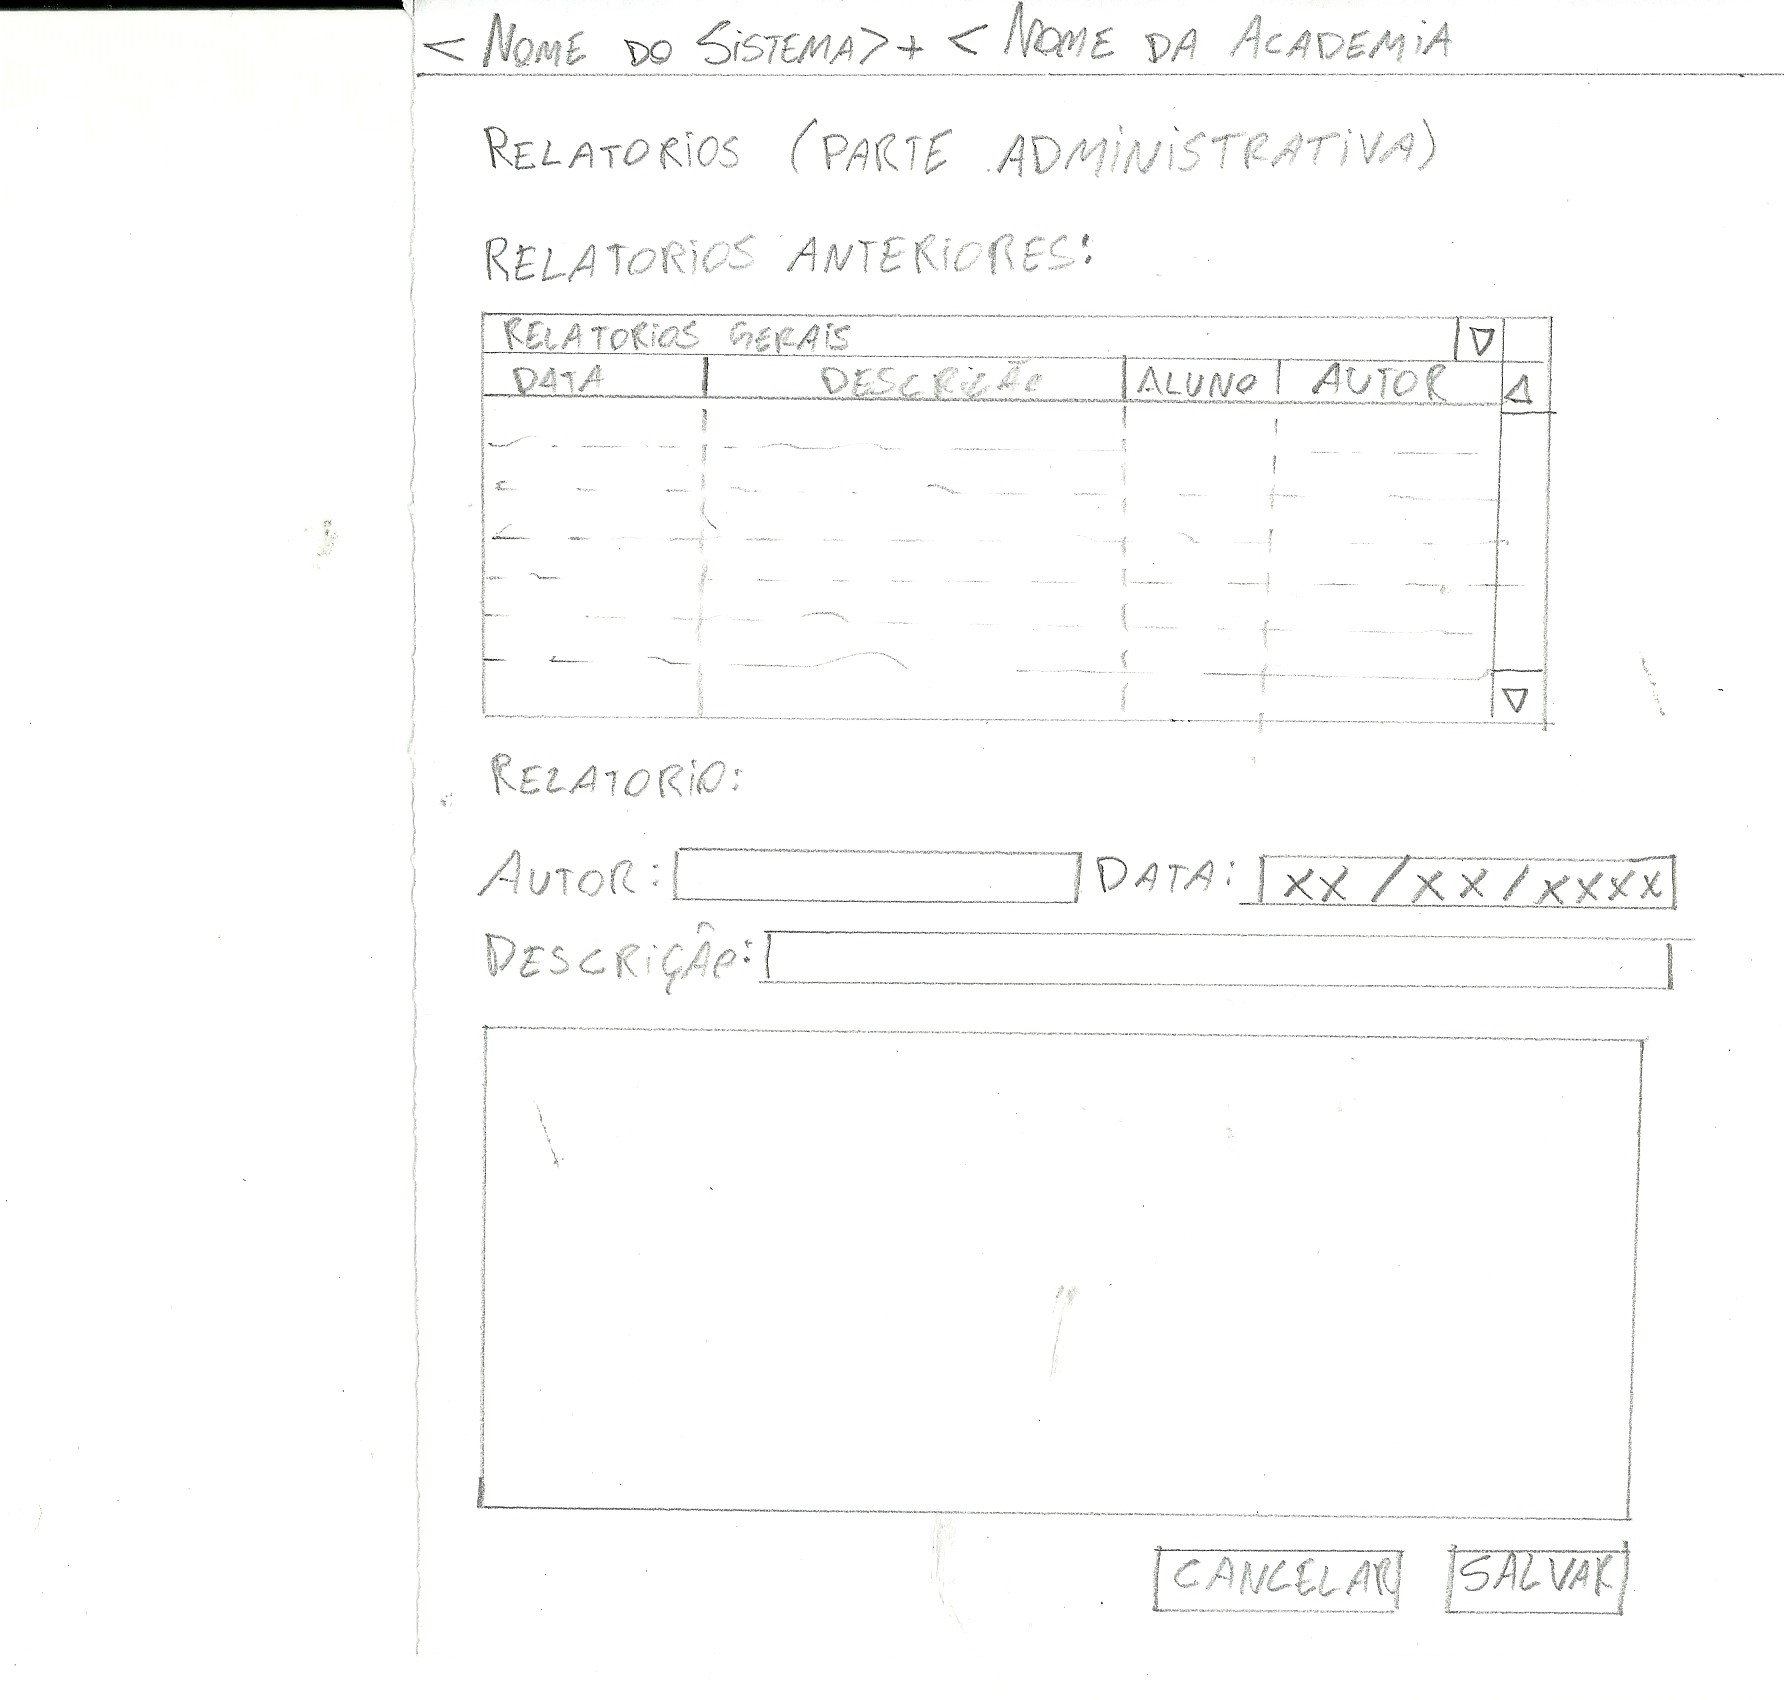 < NOME DO SISTEMA> + < NOME DA ACADEMIA
RELATORIOS (PARTE ADMINISTRATIVA)
RELATORIOS ANTERIORES:
RELATORIOS GERAIS
DATA DESCRIÇÃO ALUNO AUTOR
RELATORIO:
AUTOR: DATA: XX/XX/XXXX
DESCRIÇÃO:
CANCELAR SALVAR